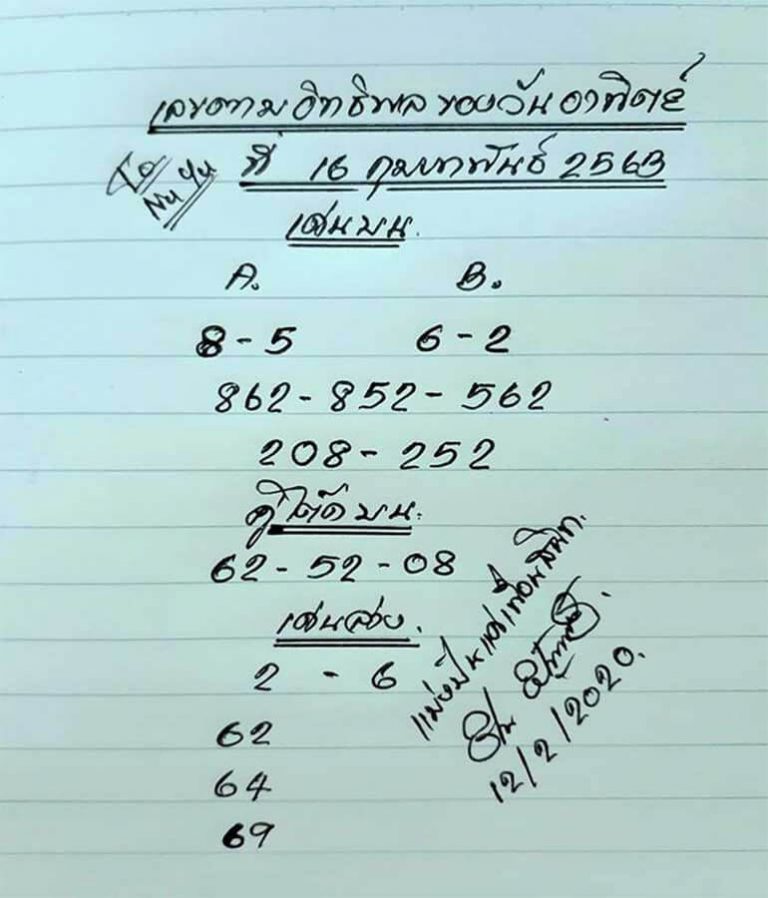 เลขตามอิทธิพลของวันอาทิตย์
To
Nu
ที่ 16 กุมภาพันธ์ 2563
เด่นบน.
A. B.
8 - 5 6 - 2
862 - 852 - 562
208 - 252
คู่โต๊ดบน.
62 - 52 - 08
เด่นล่าง.
2 - 6
62
64
69
แบ่งปันแด่เพื่อนสมาชิก.
12/2/2020.